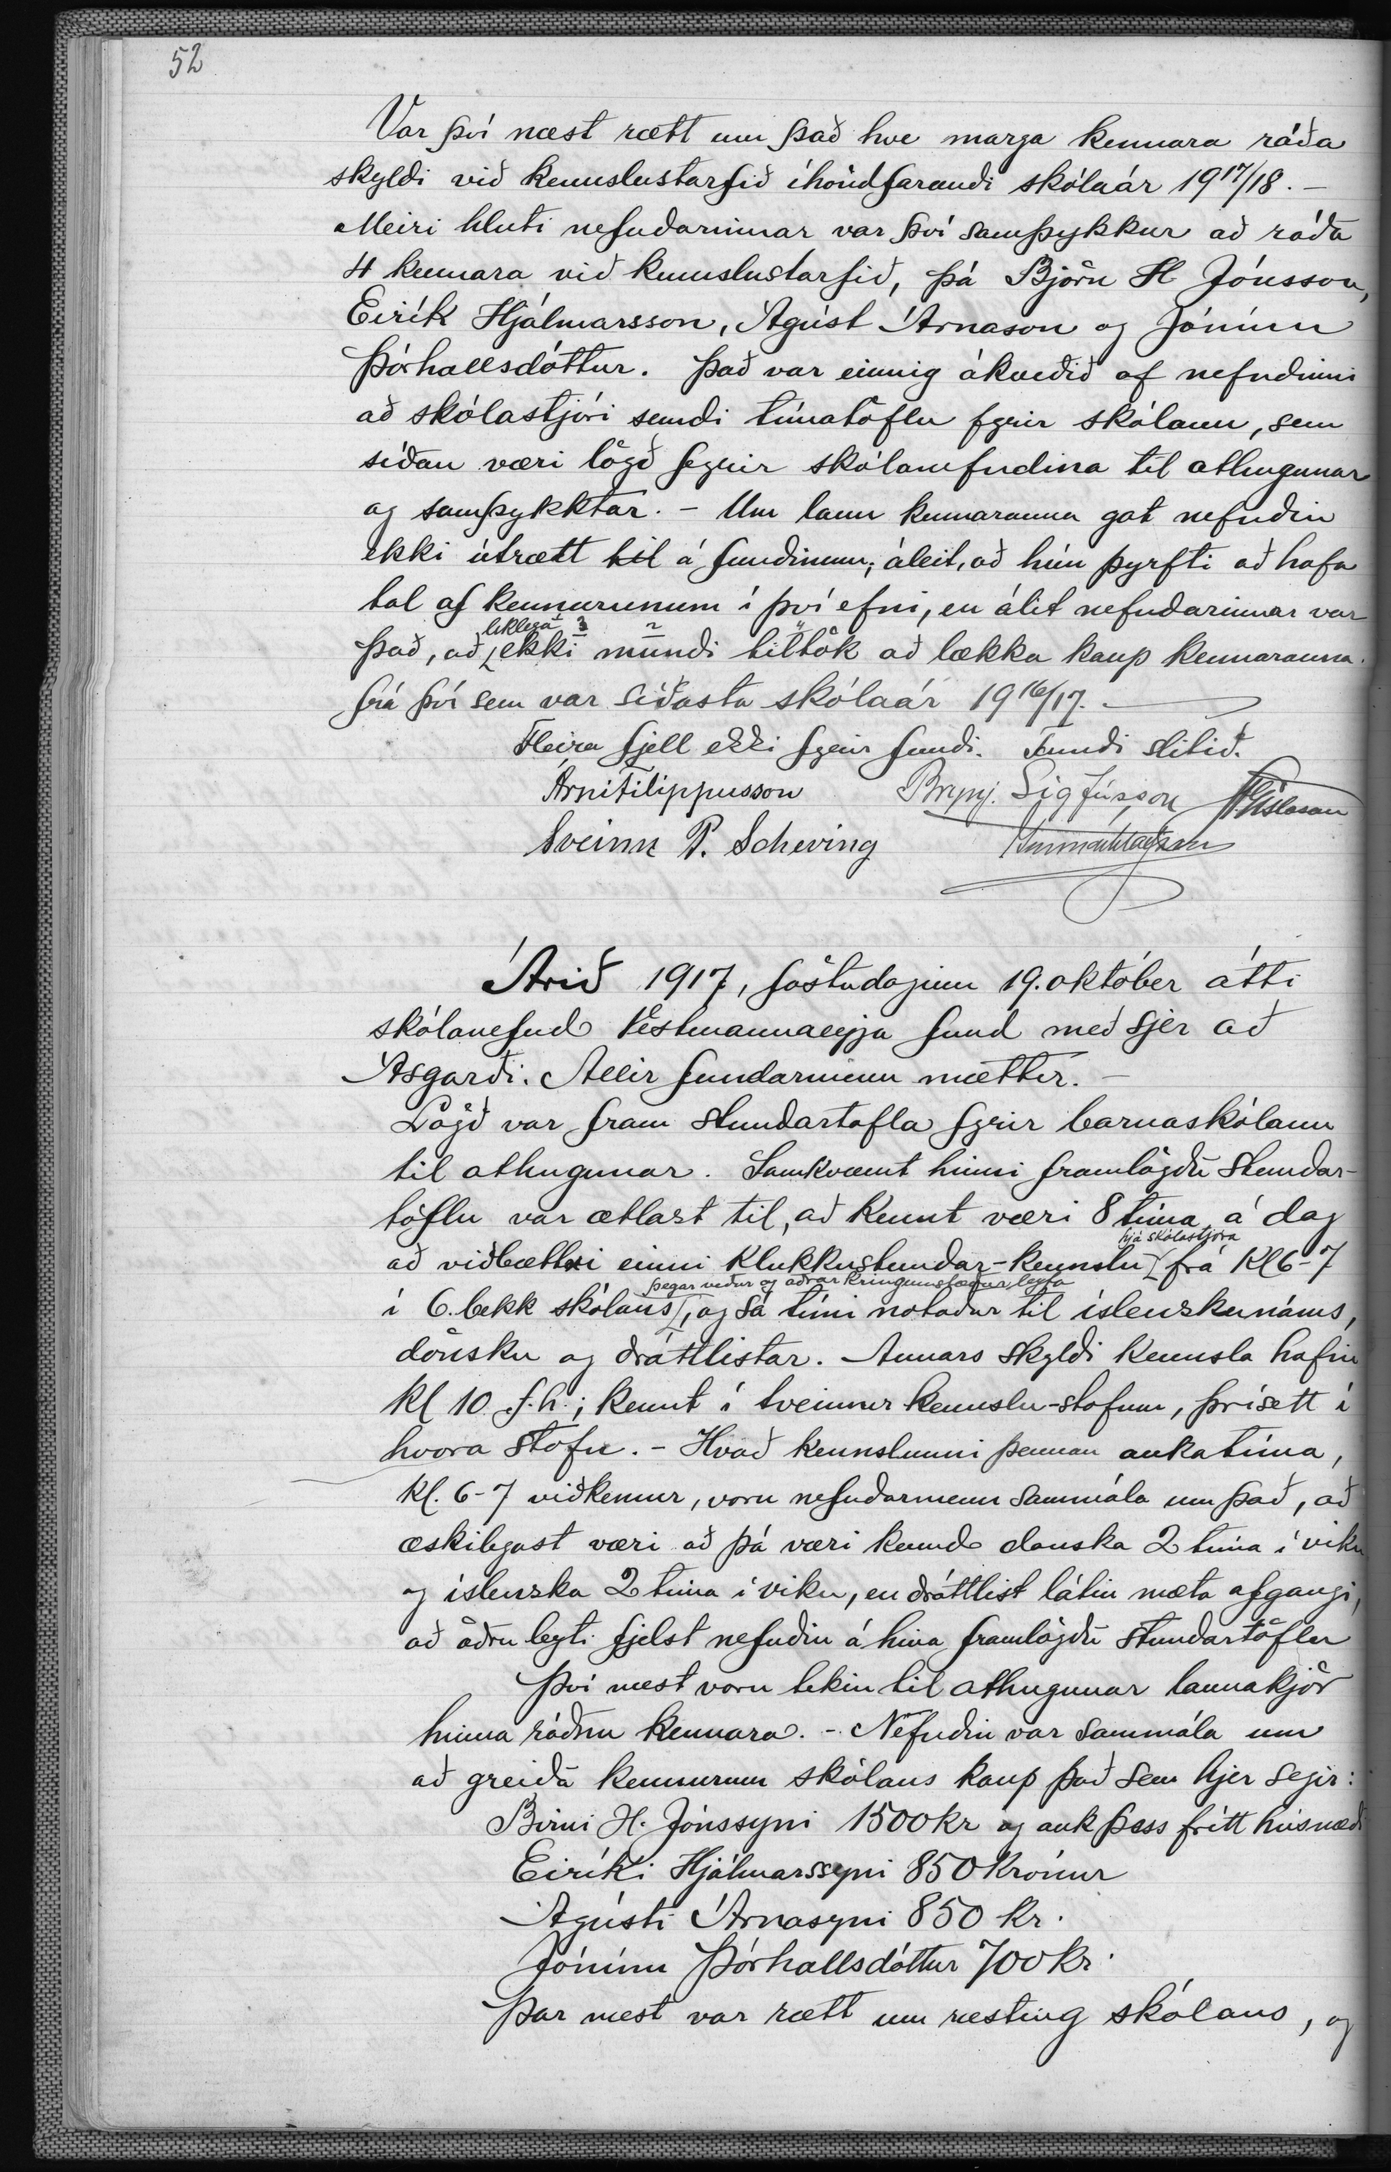 52
Var því næst rætt um það hve marga kennara ráða
skyldi við kennslustarfið íhöndfarandi skólaár 1917/18. –
Meiri hluti nefndarinnar var því samþykkur að ráða
4 kennara við kennslustarfið, þá Björn H. Jónsson,
Eirík Hjálmarsson, Ágúst Árnason og Jónínu
Þórhallsdóttur. Það var einnig ákveðið af nefndinni
að skólastjóri semdi tímatöflu fyrir skólann, sem
síðan væri lögð fyrir skólanefndina til athugunar
og samþykktar. – Um laun kennaranna gat nefndin
ekki útrætt til á fundinum; áleit, að hún þyrfti að hafa
tal af kennurunum í því efni, en álit nefndarinnar var
það, að líklega ekki mundi tiltök að lækka kaup kennaranna
frá því sem var síðasta skólaár 1916/17. –
Fleira fjell ekki fyrir fundi. Fundi slitið.
Árni Filippusson Brynj. Sigfússon
Sveinn P. Scheving Gunnar Ólafsson
Árið 1917, föstudaginn 19. október átti
skólanefnd Vestmannaeyja fund með sjer að
Ásgarði. Allir fundarmenn mættir. –
Lögð var fram stundartafla fyrir barnaskólann
til athugunar. Samkvæmt hinni framlögðu stundar-
töflu var ætlast til, að kennt væri 8 tíma á dag
að viðbættri einni klukkustundar-kennslu hjá skólastjóra frá kl 6-7
í 6. bekk skólans, þegar veður og aðrar kringumstæður leyfa og sá tími notaður til íslenskunáms,
dönsku og dráttlistar. Annars skyldi kennsla hafin
kl 10 f.h.; kennt í tveimur kennslu-stofum, þrísett í
hvora stofu. – Hvað kennslunni þennan aukatíma,
kl. 6-7 viðkemur, voru nefndarmenn sammála um það, að
æskilegast væri að þá væri kennd danska 2 tíma í viku
og íslenska 2 tíma í viku, en dráttlist látin mæta afgangi,
að öðru leyti fjelst nefndin á hina framlögðu stundartöflu
Því næst voru tekin til athugunar launakjör
hinna ráðnu kennara. – Nefndin var sammála um
að greiða kennurum skólans kaup það sem hjer segir:
Birni H. Jónssyni 1500 kr og auk þess frítt húsnæði
Eiríki Hjálmarssyni 850 krónur
Ágústi Árnasyni 850 kr.
Jónínu Þórhallsdóttur 700 kr.
Þar næst var rætt um ræsting skólans, og